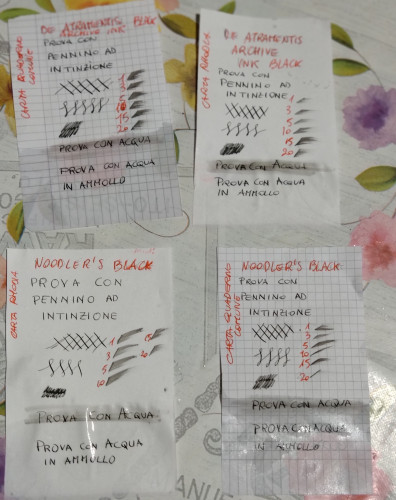 DE ATRAMENTIS BLACK
ARCHIVE INK
PROVA CON
PENNINO AD
INTINZIONE
CARTA QUADERNO
1
3
5
10
15
20
PROVA CON ACQUA
PROVA CON ACQUA
IN AMMOLLO
DE ATRAMENTIS
ARCHIVE
INK BLACK
PROVA CON
PENNINO AD
INTINZIONE
1
3
5
10
15
20
PROVA CON ACQUA
PROVA CON ACQUA
IN AMMOLLO
NOODLER'S BLACK
PROVA CON
PENNINO AD
INTINZIONE
CARTA RHODIA
1
3
5
10
15
20
PROVA CON ACQUA
PROVA CON ACQUA
IN AMMOLLO
NOODLER'S BLACK
PROVA CON
PENNINO AD
INTINZIONE
CARTA QUADERNO
1
3
5
10
15
20
PROVA CON ACQUA
PROVA CON ACQUA
IN AMMOLLO